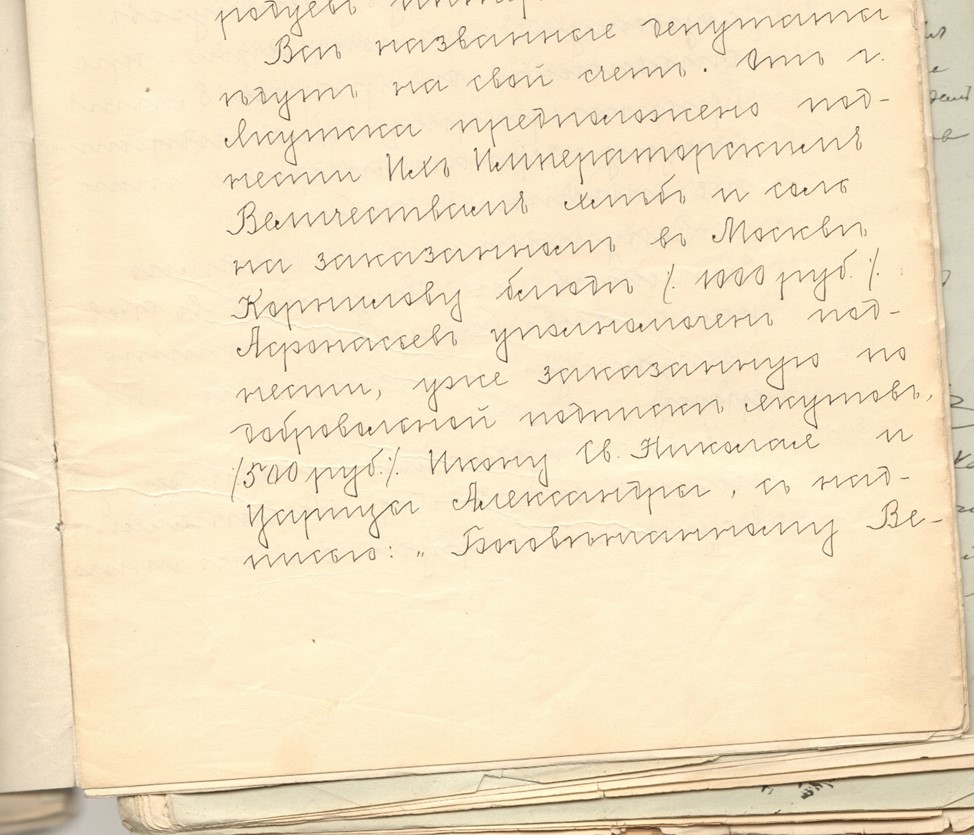 Всѣ названные депутаты
ѣдутъ на свой счетъ. Отъ г.
Якутска предположено под-
нести Ихъ Императорскимъ
Величествамъ хлѣбъ и соль
на заказанномъ въ Москвѣ
Корнилову блюдѣ /. 1000 руб. /.
Афонасьевъ уполномоченъ под-
нести, уже заказанную по
добровольной подписки якутовъ,
/500 руб./. Икону Св. Николая и
Царицы Александры, съ над-
писью: „ Боговѣнчанному Ве-